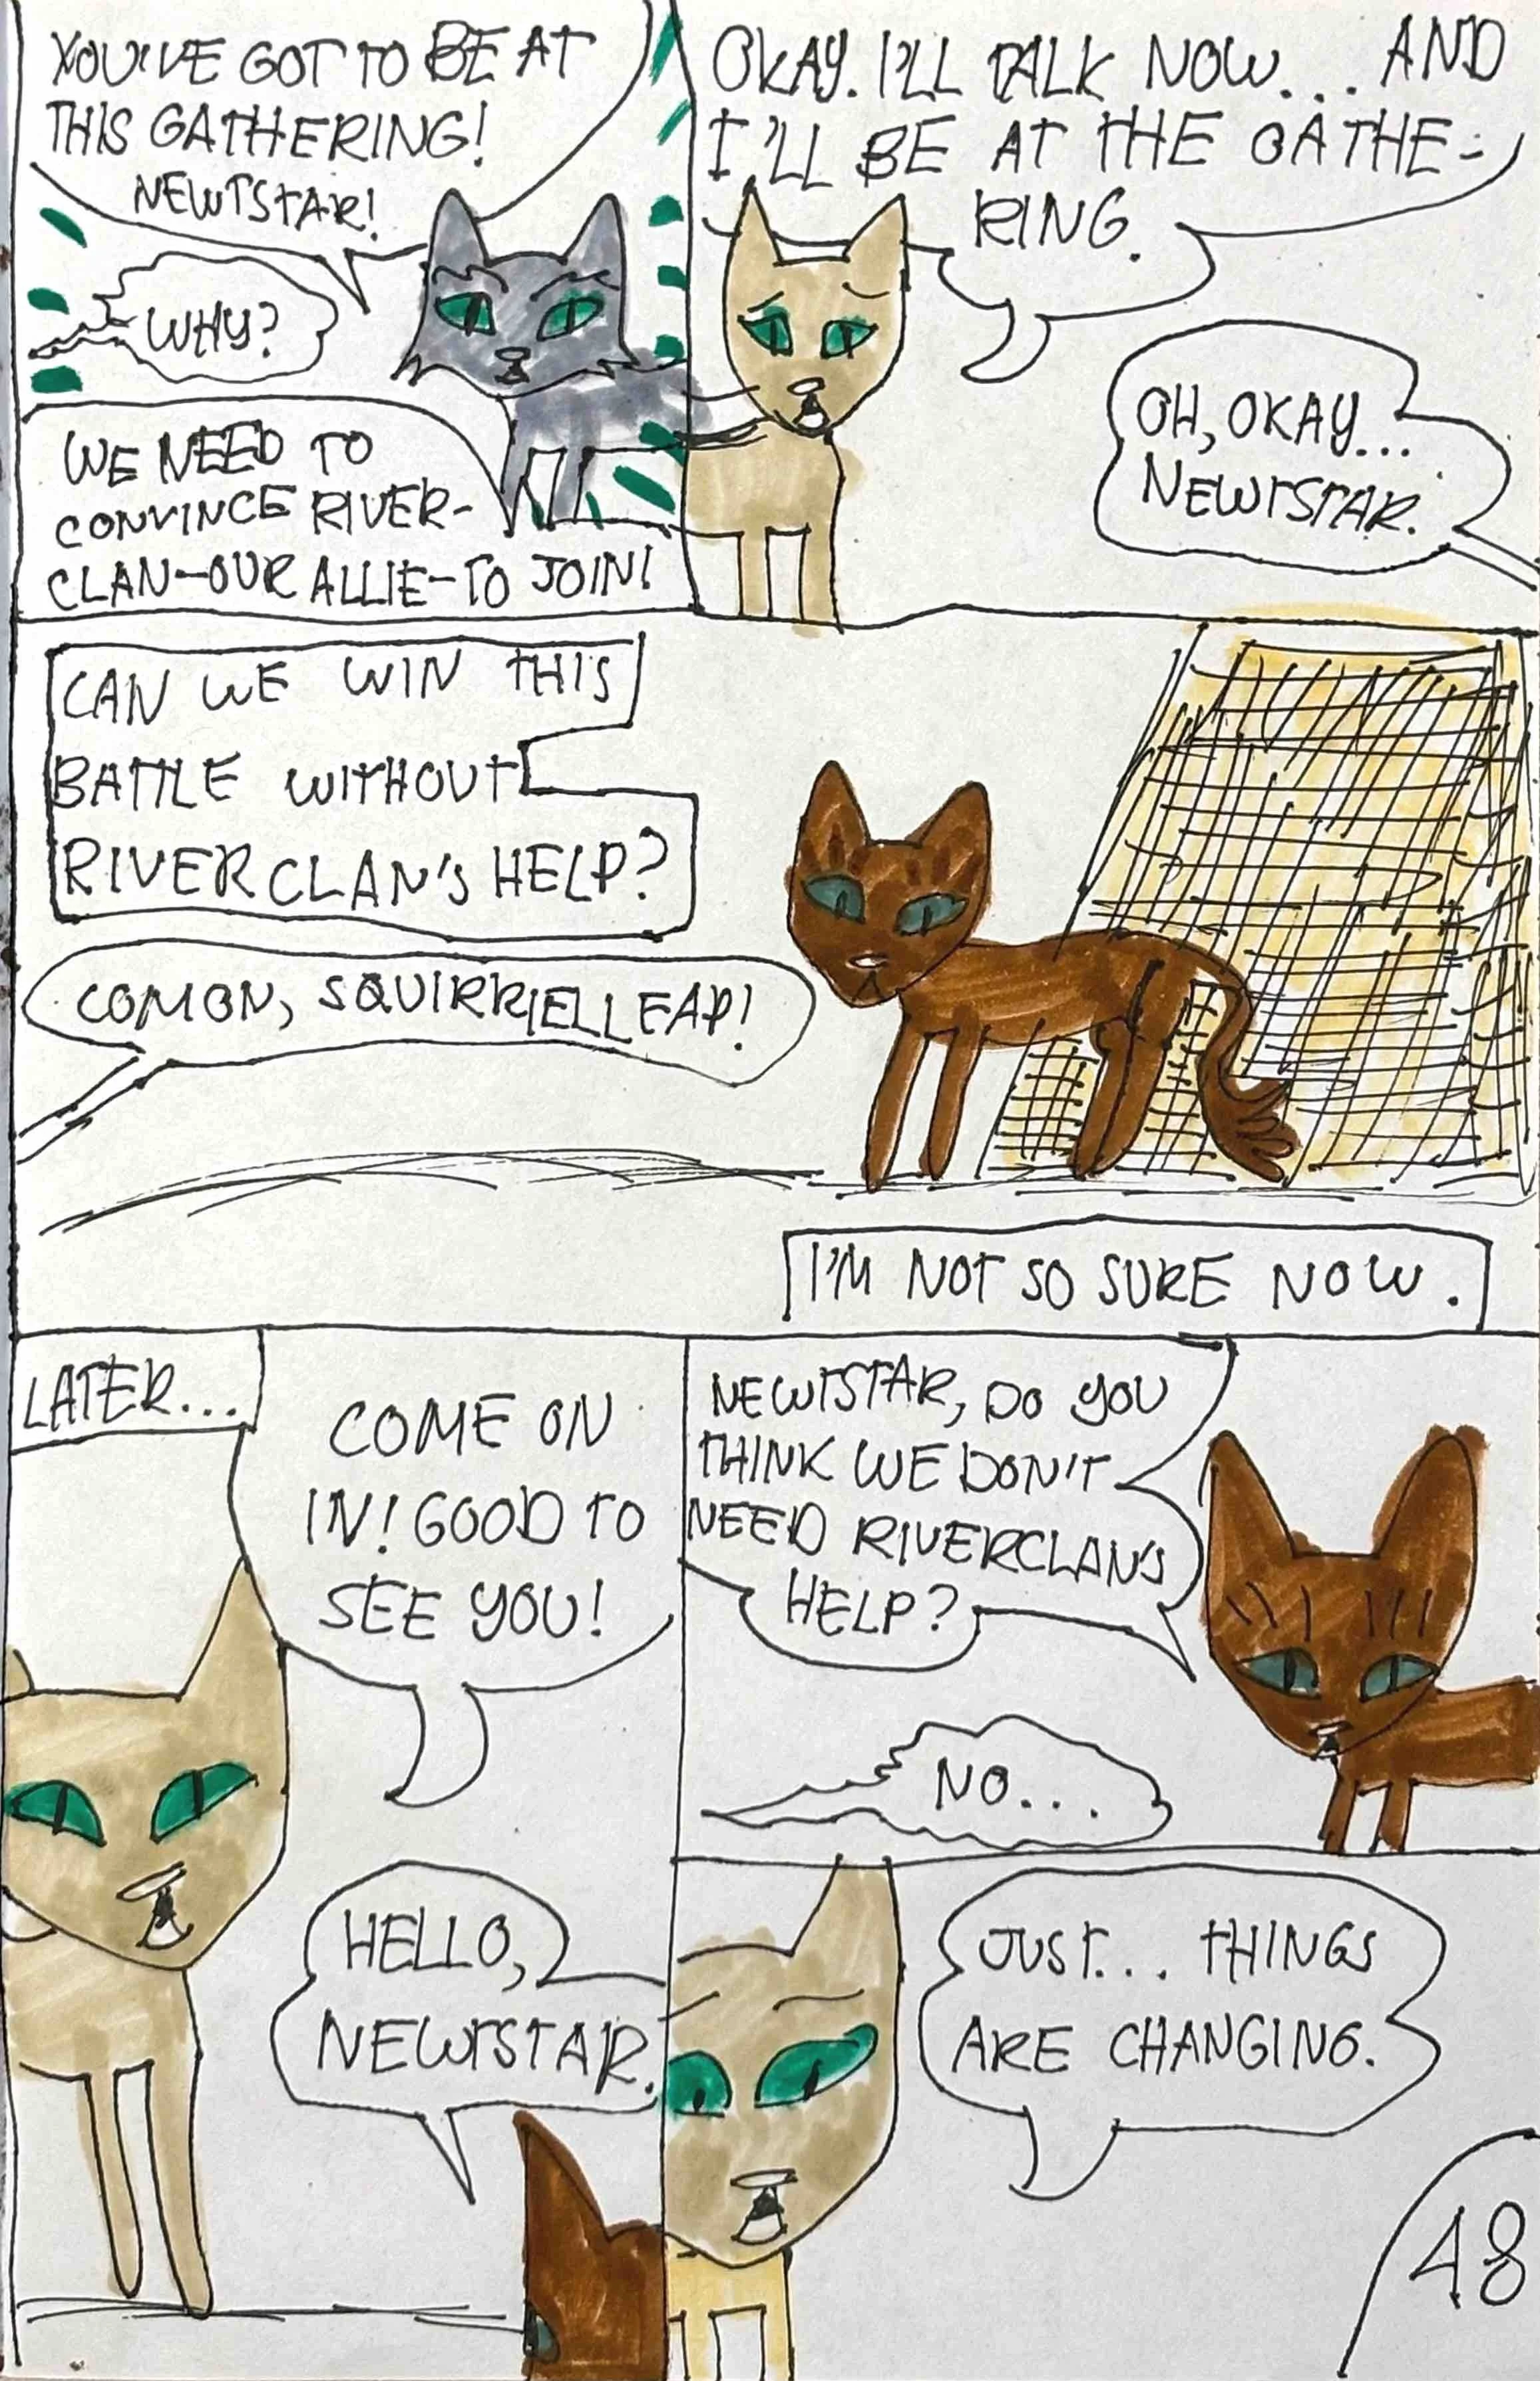 YOU'VE GOT TO BE AT
THIS GATHERING!
NEWTSTAR!
WHY?
WE NEED TO
CONVINCE RIVER-
CLAN-OUR ALLIE-TO JOIN!
OKAY. I'LL TALK NOW... AND
I'LL BE AT THE GATHE-
RING.
OH, OKAY...
NEWTSTAR.
CAN WE WIN THIS
BATTLE WITHOUT
RIVERCLAN'S HELP?
COMON, SQUIRRIELLEAP!
I'M NOT SO SURE NOW.
LATER...
COME ON
IN! GOOD TO
SEE YOU!
HELLO,
NEWTSTAR.
NEWTSTAR, DO YOU
THINK WE DON'T
NEED RIVERCLAN'S
HELP?
NO...
JUST... THINGS
ARE CHANGING.
48